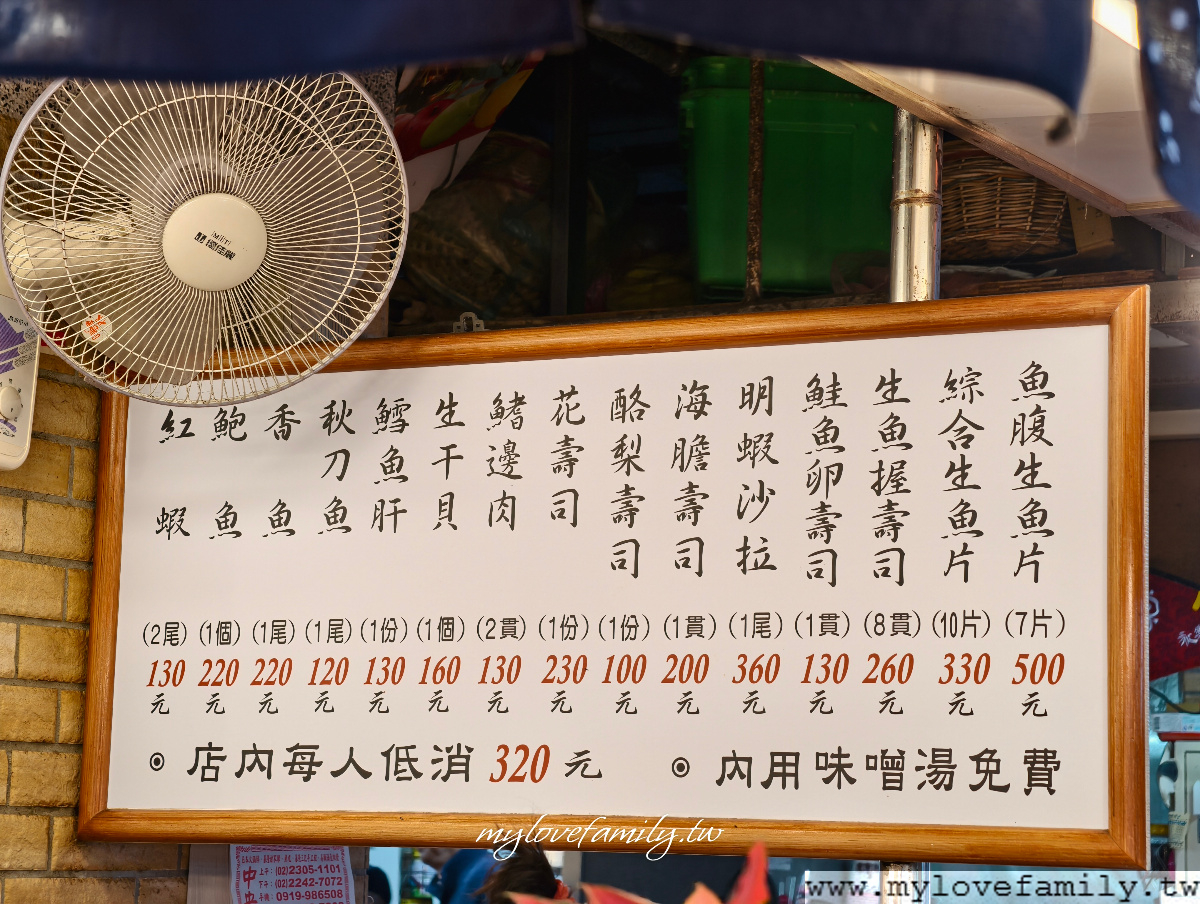 魚腹生魚片 (7片) 500元
綜合生魚片 (10片) 330元
生魚握壽司 (8貫) 260元
鮭魚卵壽司 (1貫) 130元
明蝦沙拉 (1尾) 360元
海膽壽司 (1貫) 200元
酪梨壽司 (1份) 100元
花壽司 (1份) 230元
鰭邊肉 (2貫) 130元
生干貝 (1個) 160元
鱈魚肝 (1份) 130元
秋刀魚 (1尾) 120元
香魚 (1尾) 220元
鮑魚 (1個) 220元
紅蝦 (2尾) 130元
◉ 店內每人低消 320 元
◉ 內用味噌湯免費
mylovefamily.tw
(02)2305-1101
(02)2242-7072
0919-986508
www.mylovefamily.tw